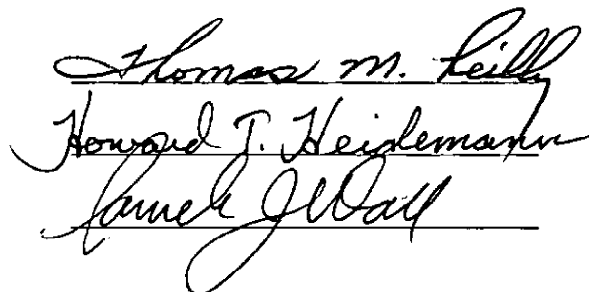 Thomas M. Reilly
Howard T. Heidemann
J Wall